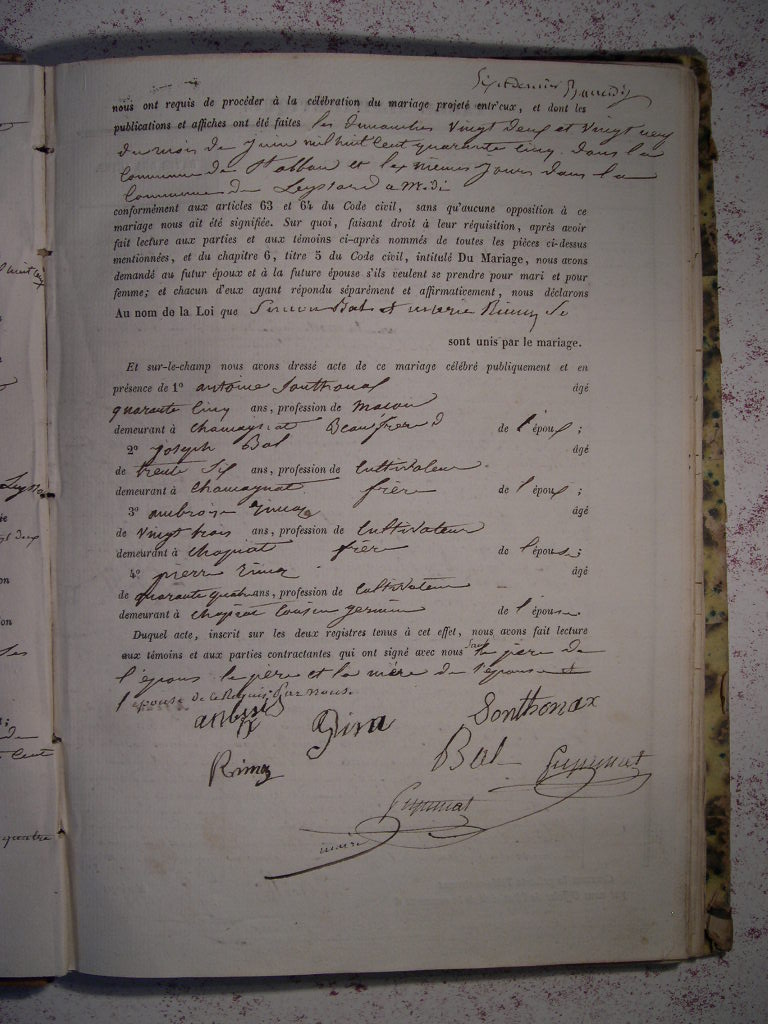 nous ont requis de procéder à la célébration du mariage projeté entr'eux, et dont les
publications et affiches ont été faites les dimanches vingt deux et vingt neuf
du mois de juin mil huit cent quarante cinq dans la
Commune de St alban et les mêmes jours dans la
Commune de Leyssard à Midi
conformément aux articles 63 et 64 du Code civil, sans qu'aucune opposition à ce
mariage nous ait été signifiée. Sur quoi, faisant droit à leur réquisition, après avoir
fait lecture aux parties et aux témoins ci-après nommés de toutes les pièces ci-dessus
mentionnées, et du chapitre 6, titre 5 du Code civil, intitulé Du Mariage, nous avons
demandé au futur époux et à la future épouse s'ils veulent se prendre pour mari et pour
femme; et chacun d'eux ayant répondu séparément et affirmativement, nous déclarons
Au nom de la Loi que Bal et marie
sont unis par le mariage.
Et sur-le-champ nous avons dressé acte de ce mariage célébré publiquement et en
présence de 1° antoine Sonthonax âgé
quarante cinq ans, profession de macon
demeurant à chamagnat Beaufrère de l'époux;
2° joseph Bal âgé
de trente six ans, profession de Cultivateur
demeurant à chamagnat frère de l'époux;
3° ambroise âgé
de vingt trois ans, profession de Cultivateur
demeurant à frère de l'épouse;
4° pierre âgé
de quarante quatre ans, profession de Cultivateur
demeurant à Cousin germain de l'épouse
Duquel acte, inscrit sur les deux registres tenus à cet effet, nous avons fait lecture
aux témoins et aux parties contractantes qui ont signé avec nous le père de
l'époux le père et la mère de l'épouse et
l'épouse de ce Requis Par nous.
Sonthonax
Bal
maire